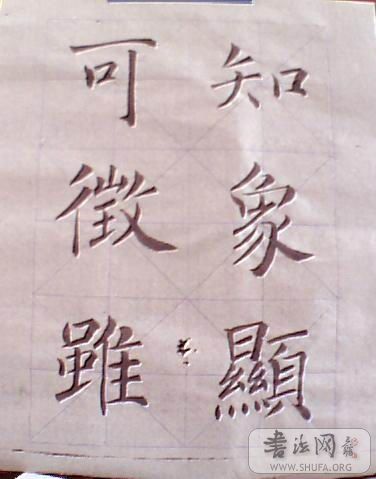 知象顯
可徵雖
书法网
WWW.SHUFA.ORG